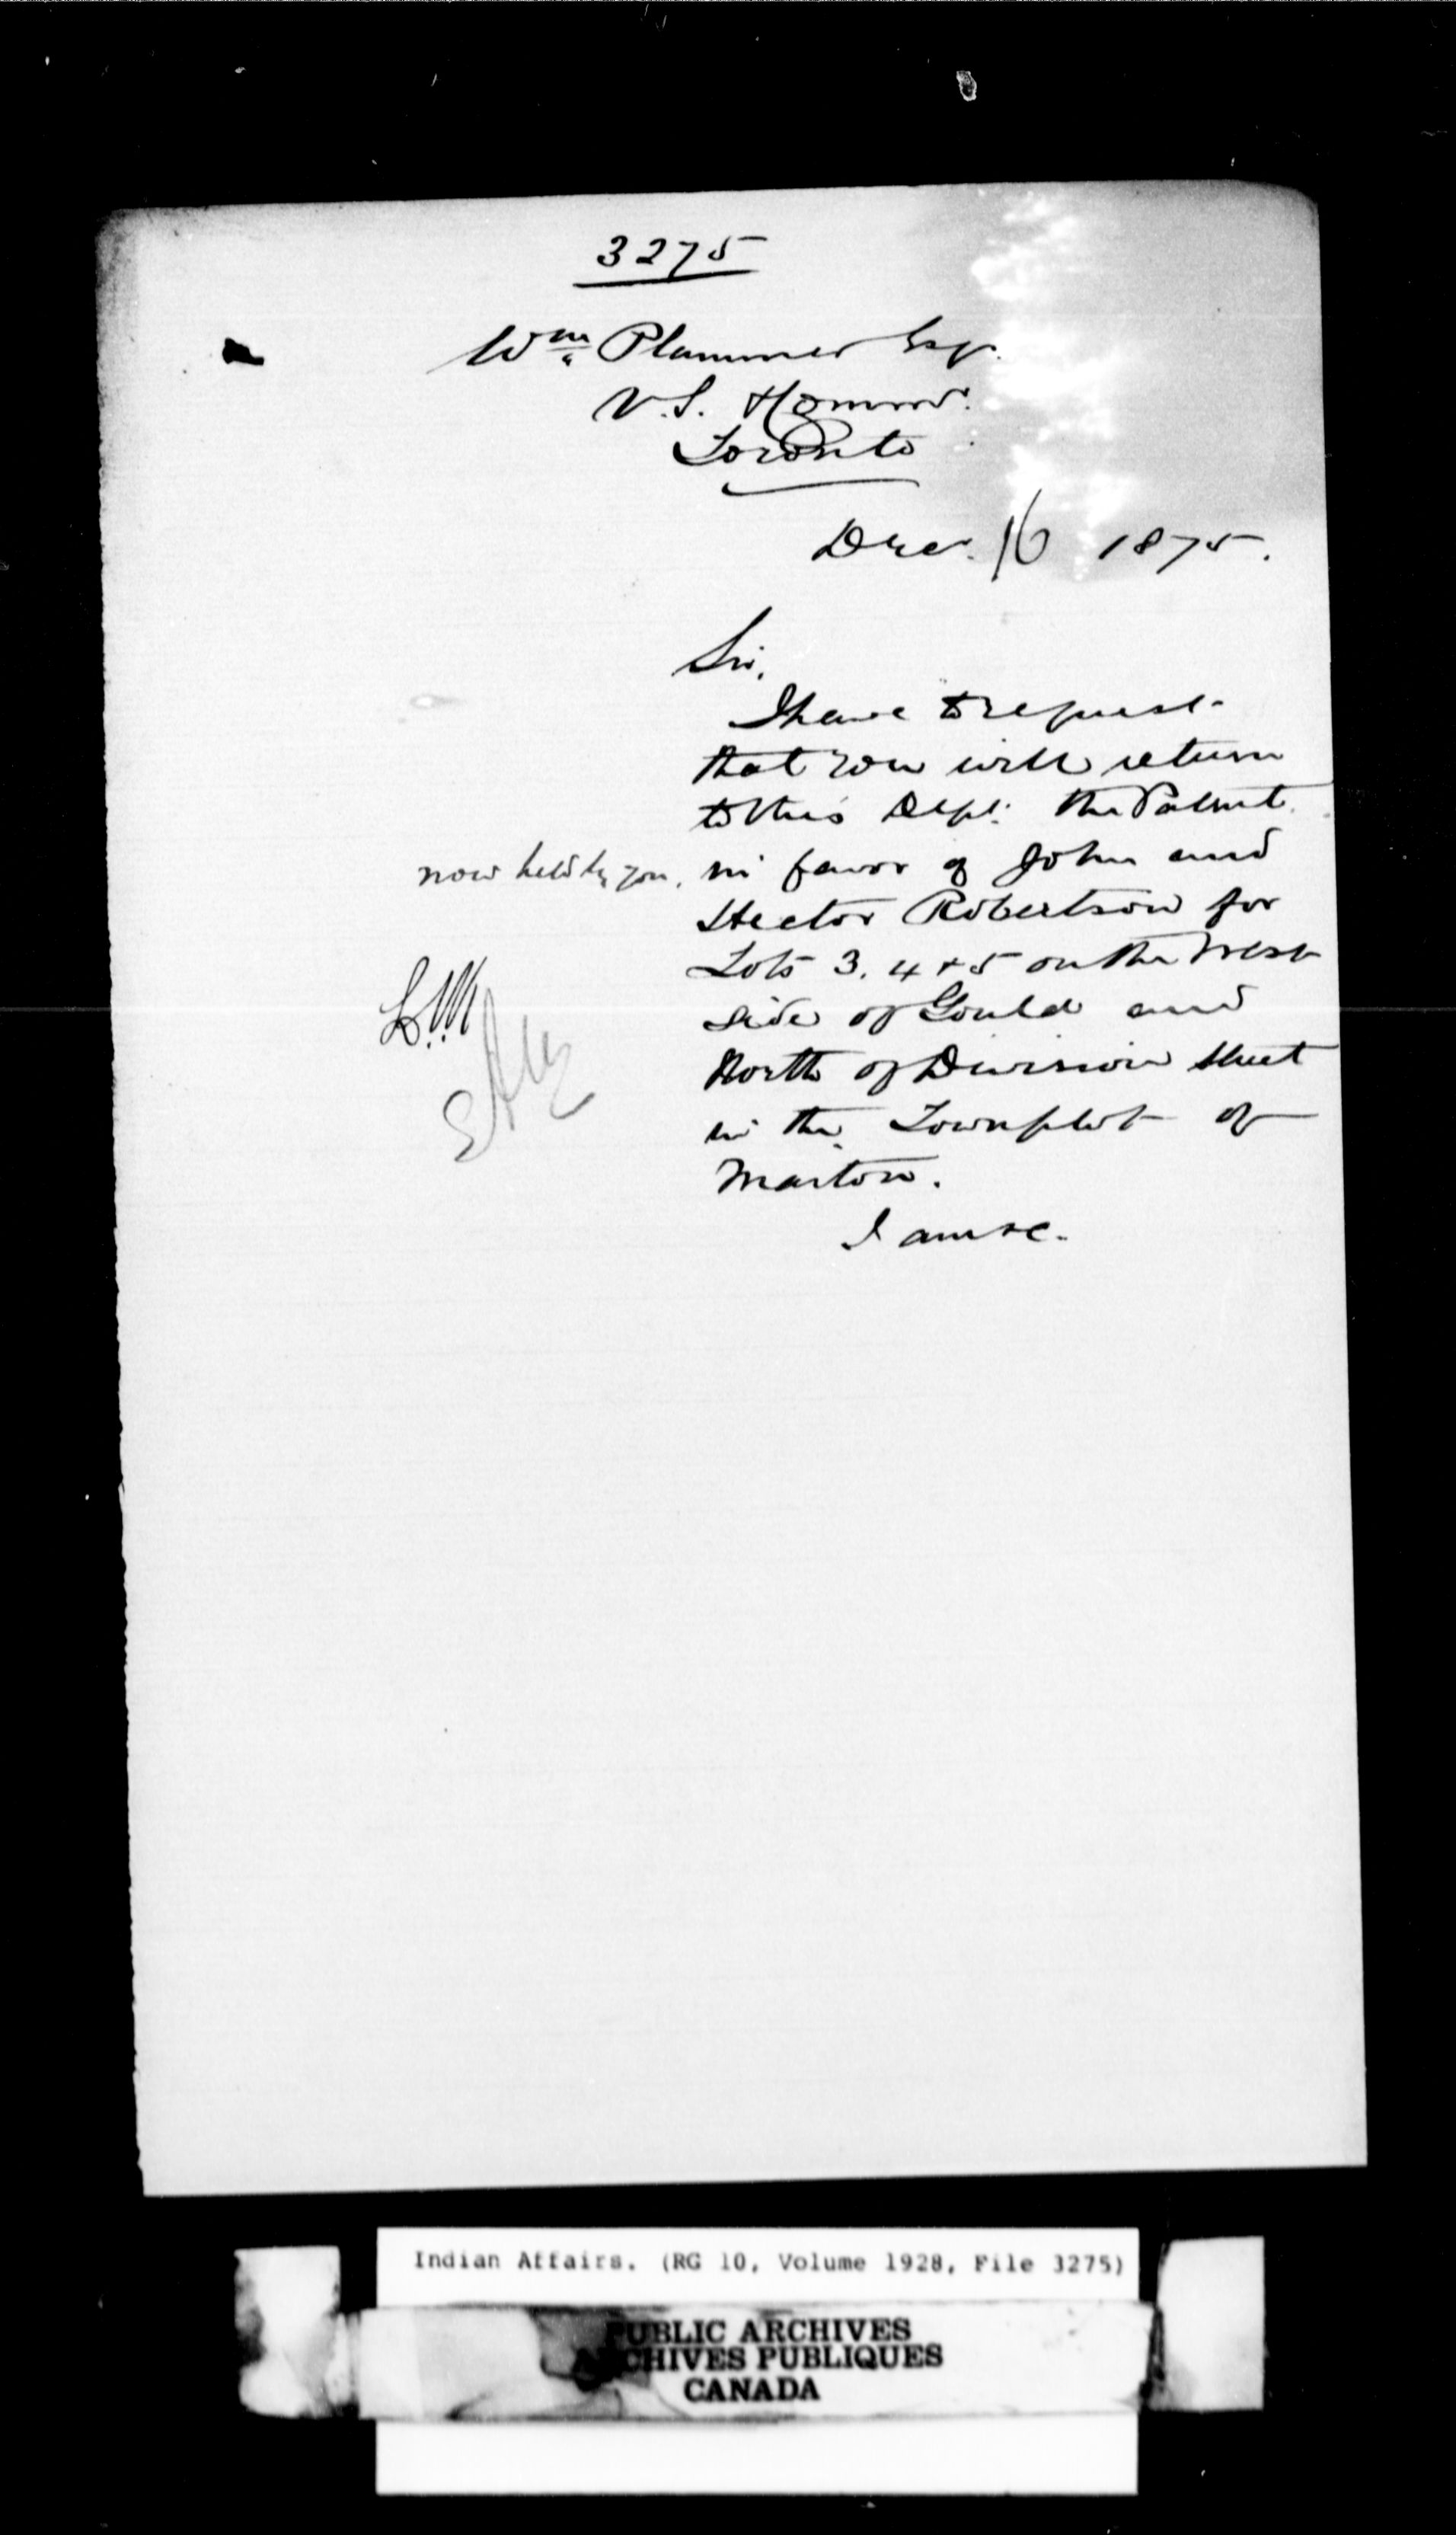 3275
Wm Plummer Esq.
V.S.
Toronto
Dec. 16 1875.
Sir,
I have to request
that you will return
to this Dept. the Patent
now held by you, in favor of John and
Hector Robertson for
Lots 3. 4 & 5 on the West
side of Gould and
North of Division Street
in the Townplot of
I am &c.
Indian Affairs. (RG 10, Volume 1928, File 3275)
PUBLIC ARCHIVES
ARCHIVES PUBLIQUES
CANADA